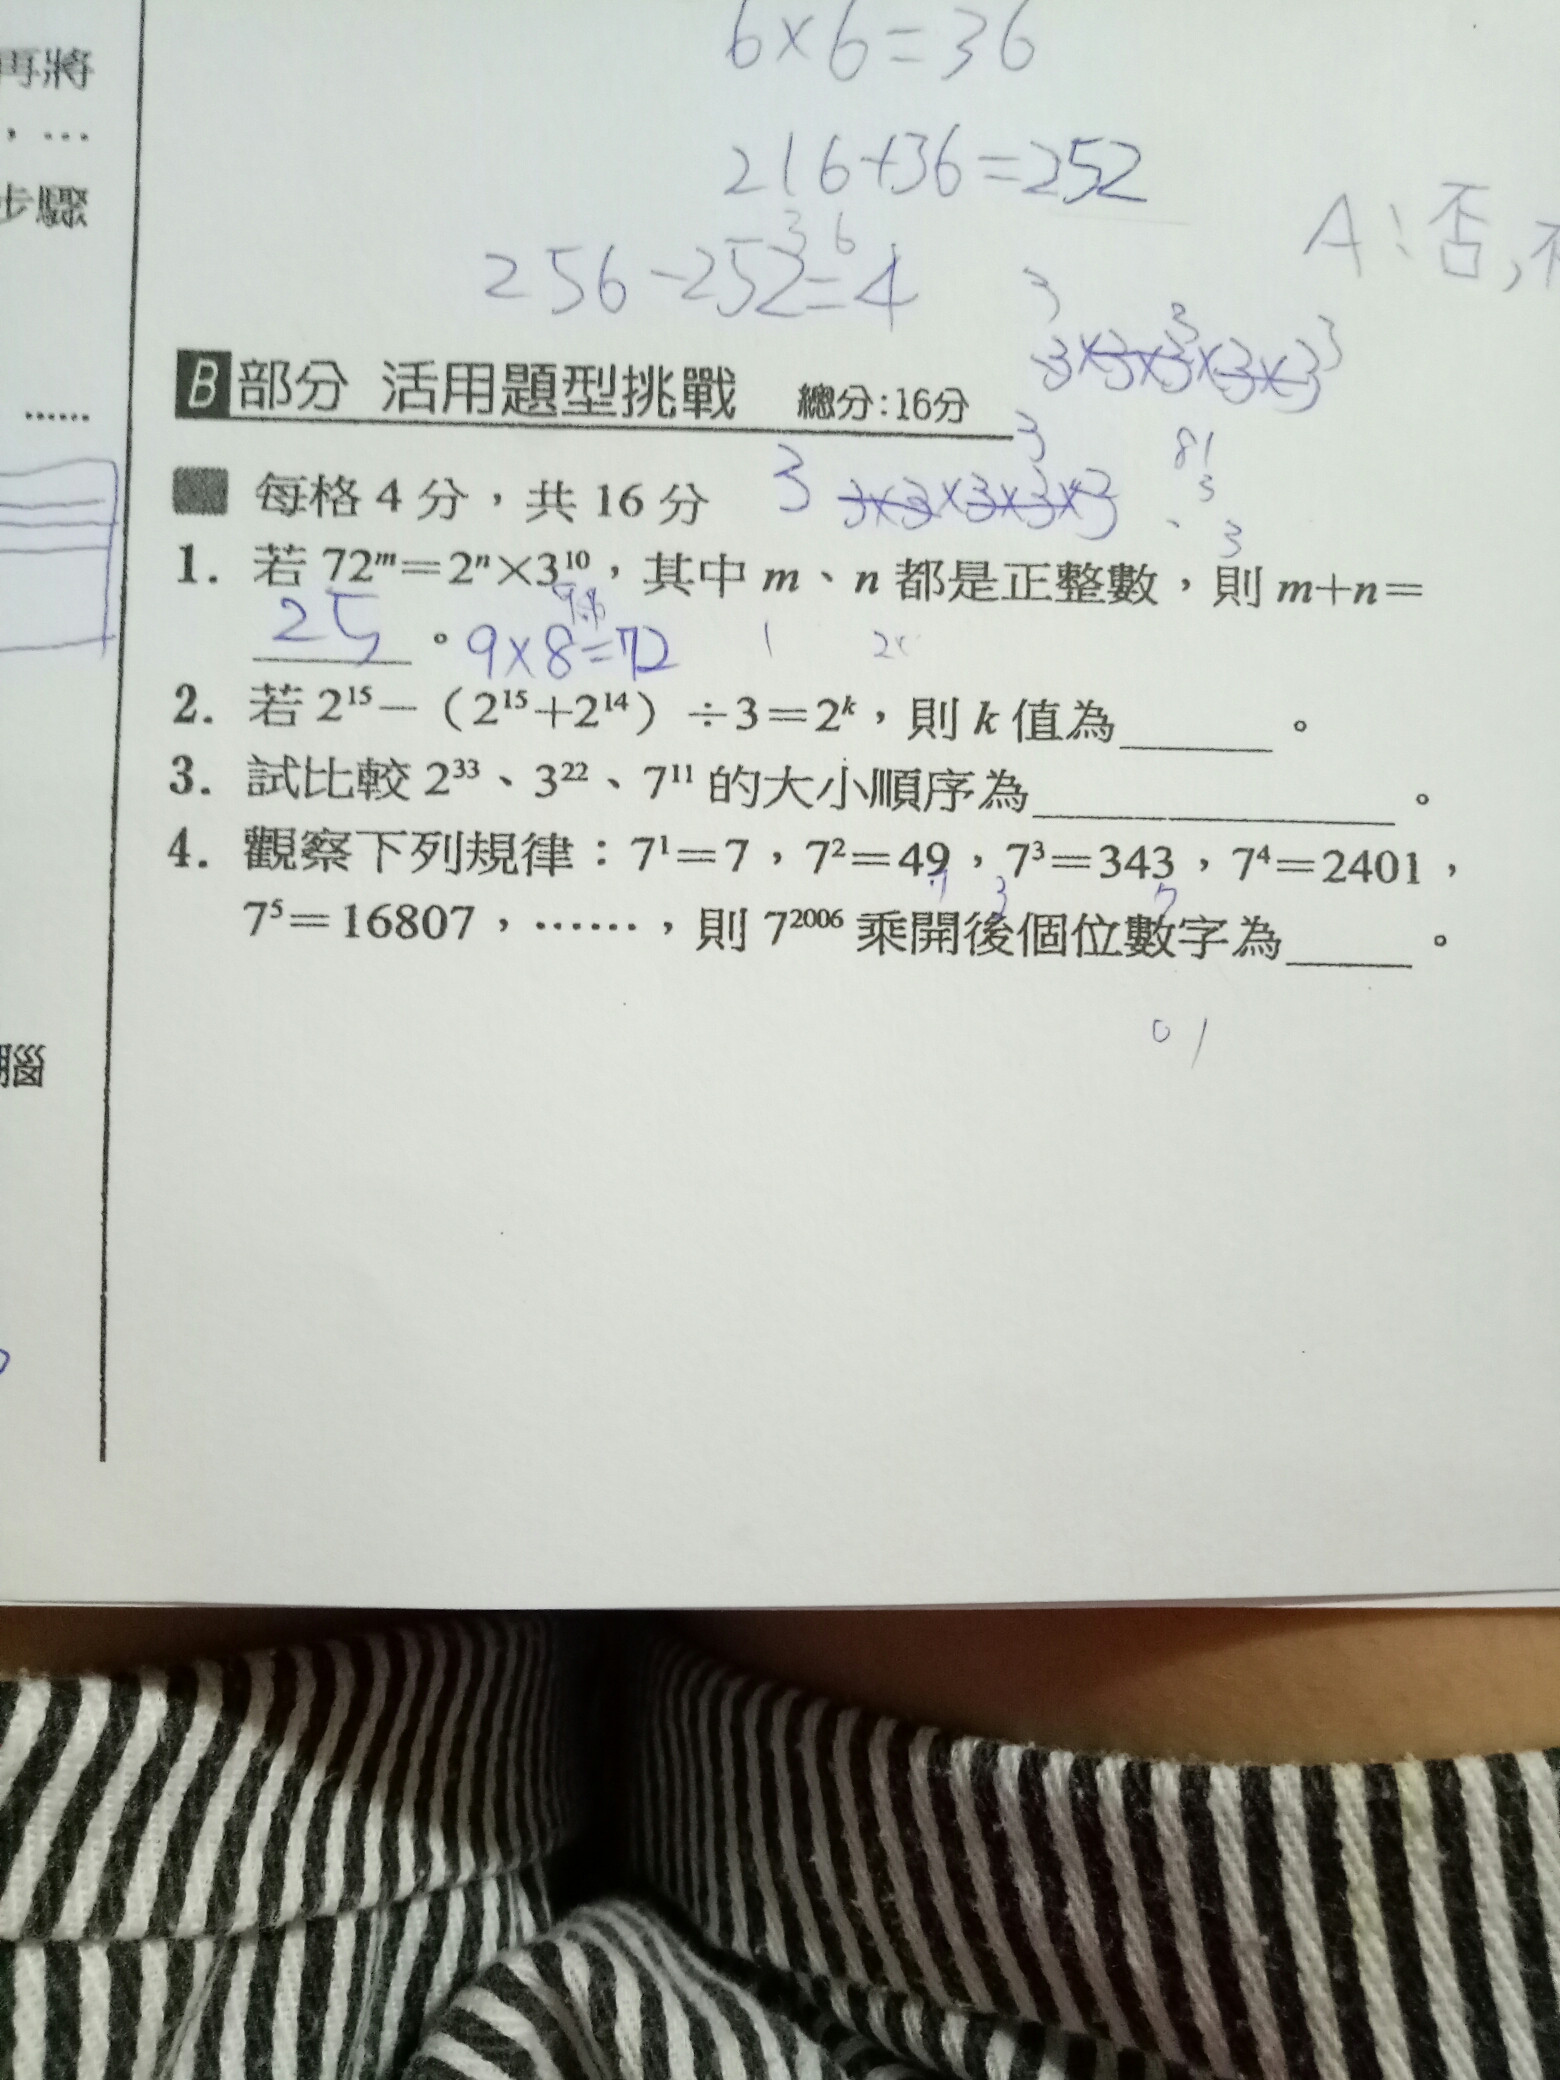 再將
，…
步驟
……
腦
6×6=36
216+36=252
36
256-252=4
A:否,
3
3×3×3×3×3
3
3
B 部分 活用題型挑戰 總分:16分
3
81
3
3
每格 4 分，共 16 分
3 3×3×3×3×3
1. 若 72ᵐ=2ⁿ×3¹⁰，其中 m、n 都是正整數，則 m+n=
25。9×8=72
1
2. 若 2¹⁵－（2¹⁵+2¹⁴）÷3=2ᵏ，則 k 值為______。
3. 試比較 2³³、3²²、7¹¹ 的大小順序為______________。
4. 觀察下列規律：7¹=7，7²=49，7³=343，7⁴=2401，
3 7
7⁵=16807，……，則 7²⁰⁰⁶ 乘開後個位數字為_____。
0 1